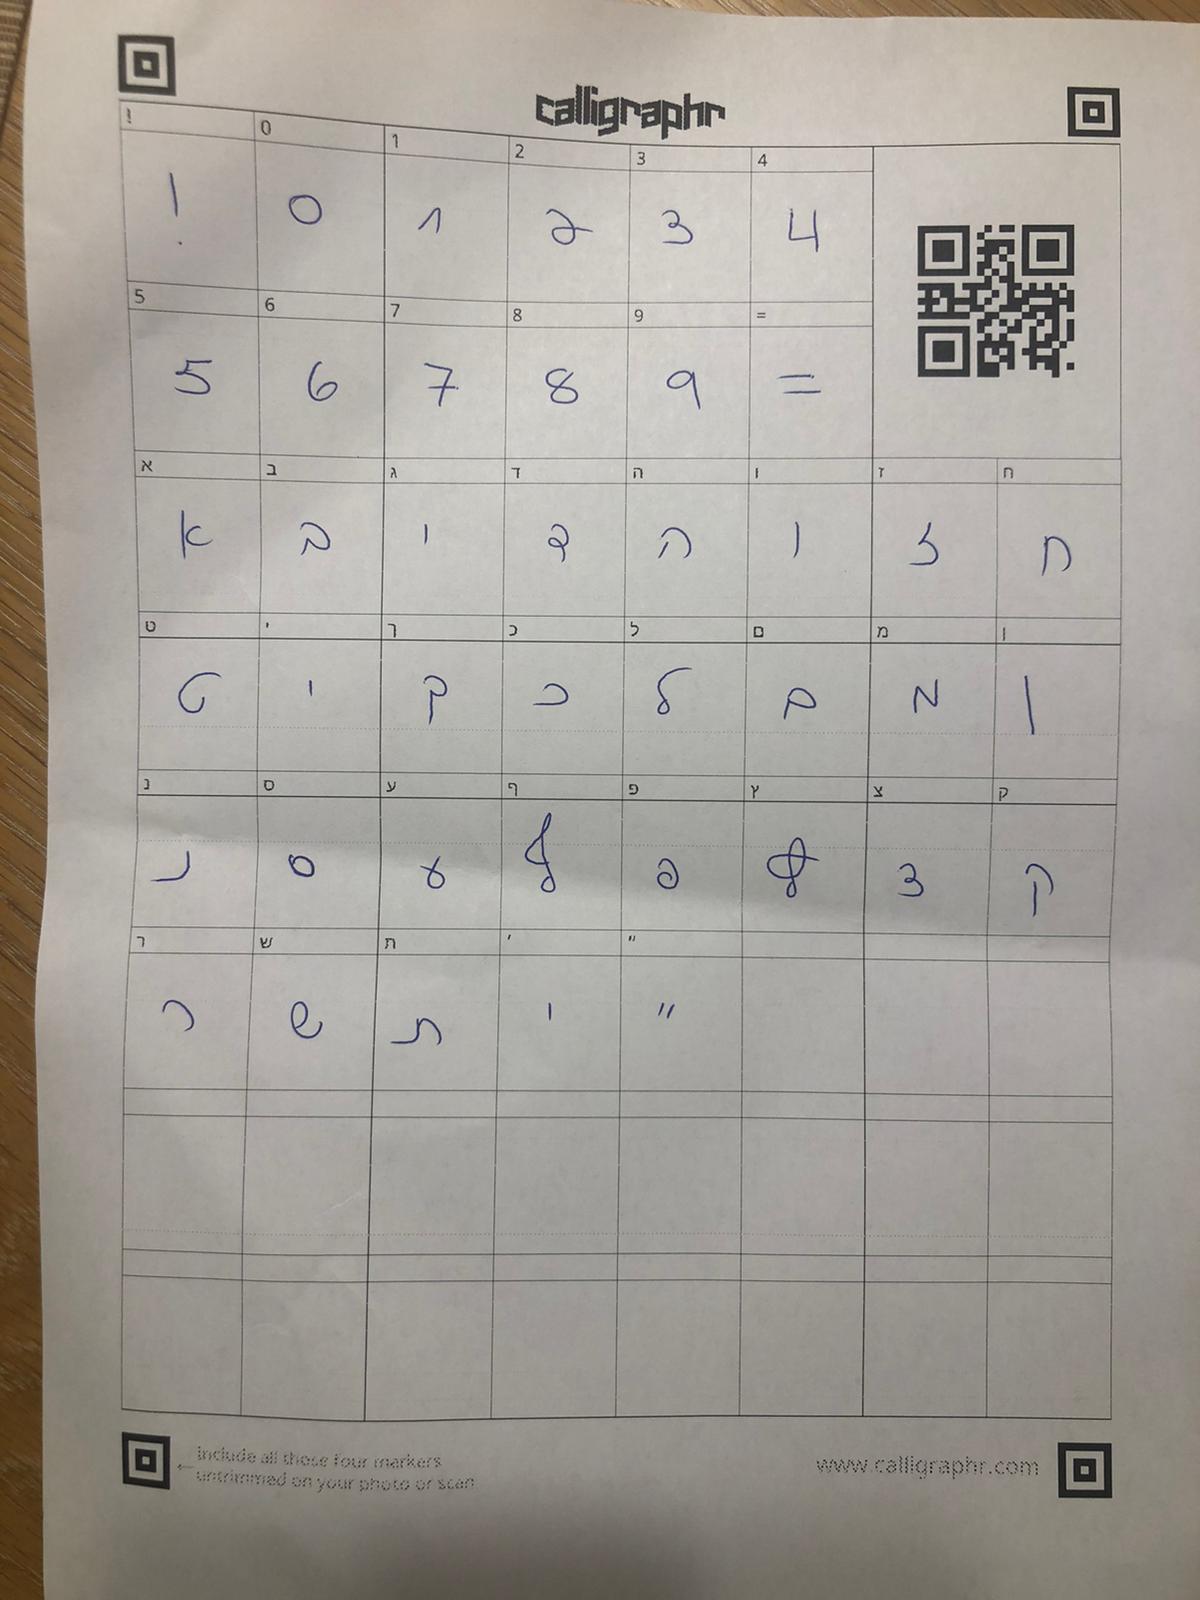 calligraphr
! 0 1 2 3 4
! 0 1 2 3 4
5 6 7 8 9 =
5 6 7 8 9 =
א ב ג ד ה ו ז ח
א ב י ד ה ו ז ח
ט י ך כ ל ם מ ן
ט י ך כ ל ם מ ן
נ ס ע ף פ ץ צ ק
נ ס ע ף פ ץ צ ק
ר ש ת ׳ ״
ר ש ת ׳ ״
← Include all those four markers
untrimmed on your photo or scan
www.calligraphr.com